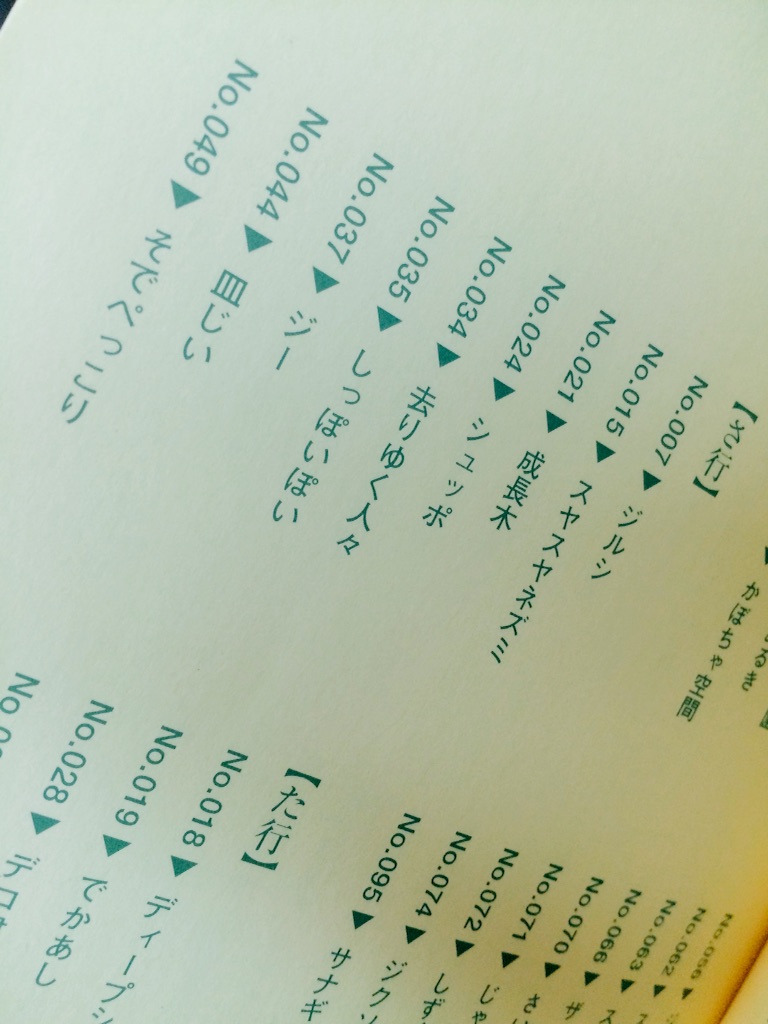 かぼちゃ空間
【さ行】
No.007▶ジルシ
No.015▶スヤスヤネズミ
No.021▶成長木
No.024▶シュッポ
No.034▶去りゆく人々
No.035▶しっぽいぽい
No.037▶ジー
No.044▶目じい
No.049▶そでぺっこり
No.056▶
No.062▶
No.063▶
No.066▶
No.070▶
No.071▶
No.072▶
No.074▶
No.095▶サナギ
【た行】
No.018▶
No.019▶でかあし
No.028▶